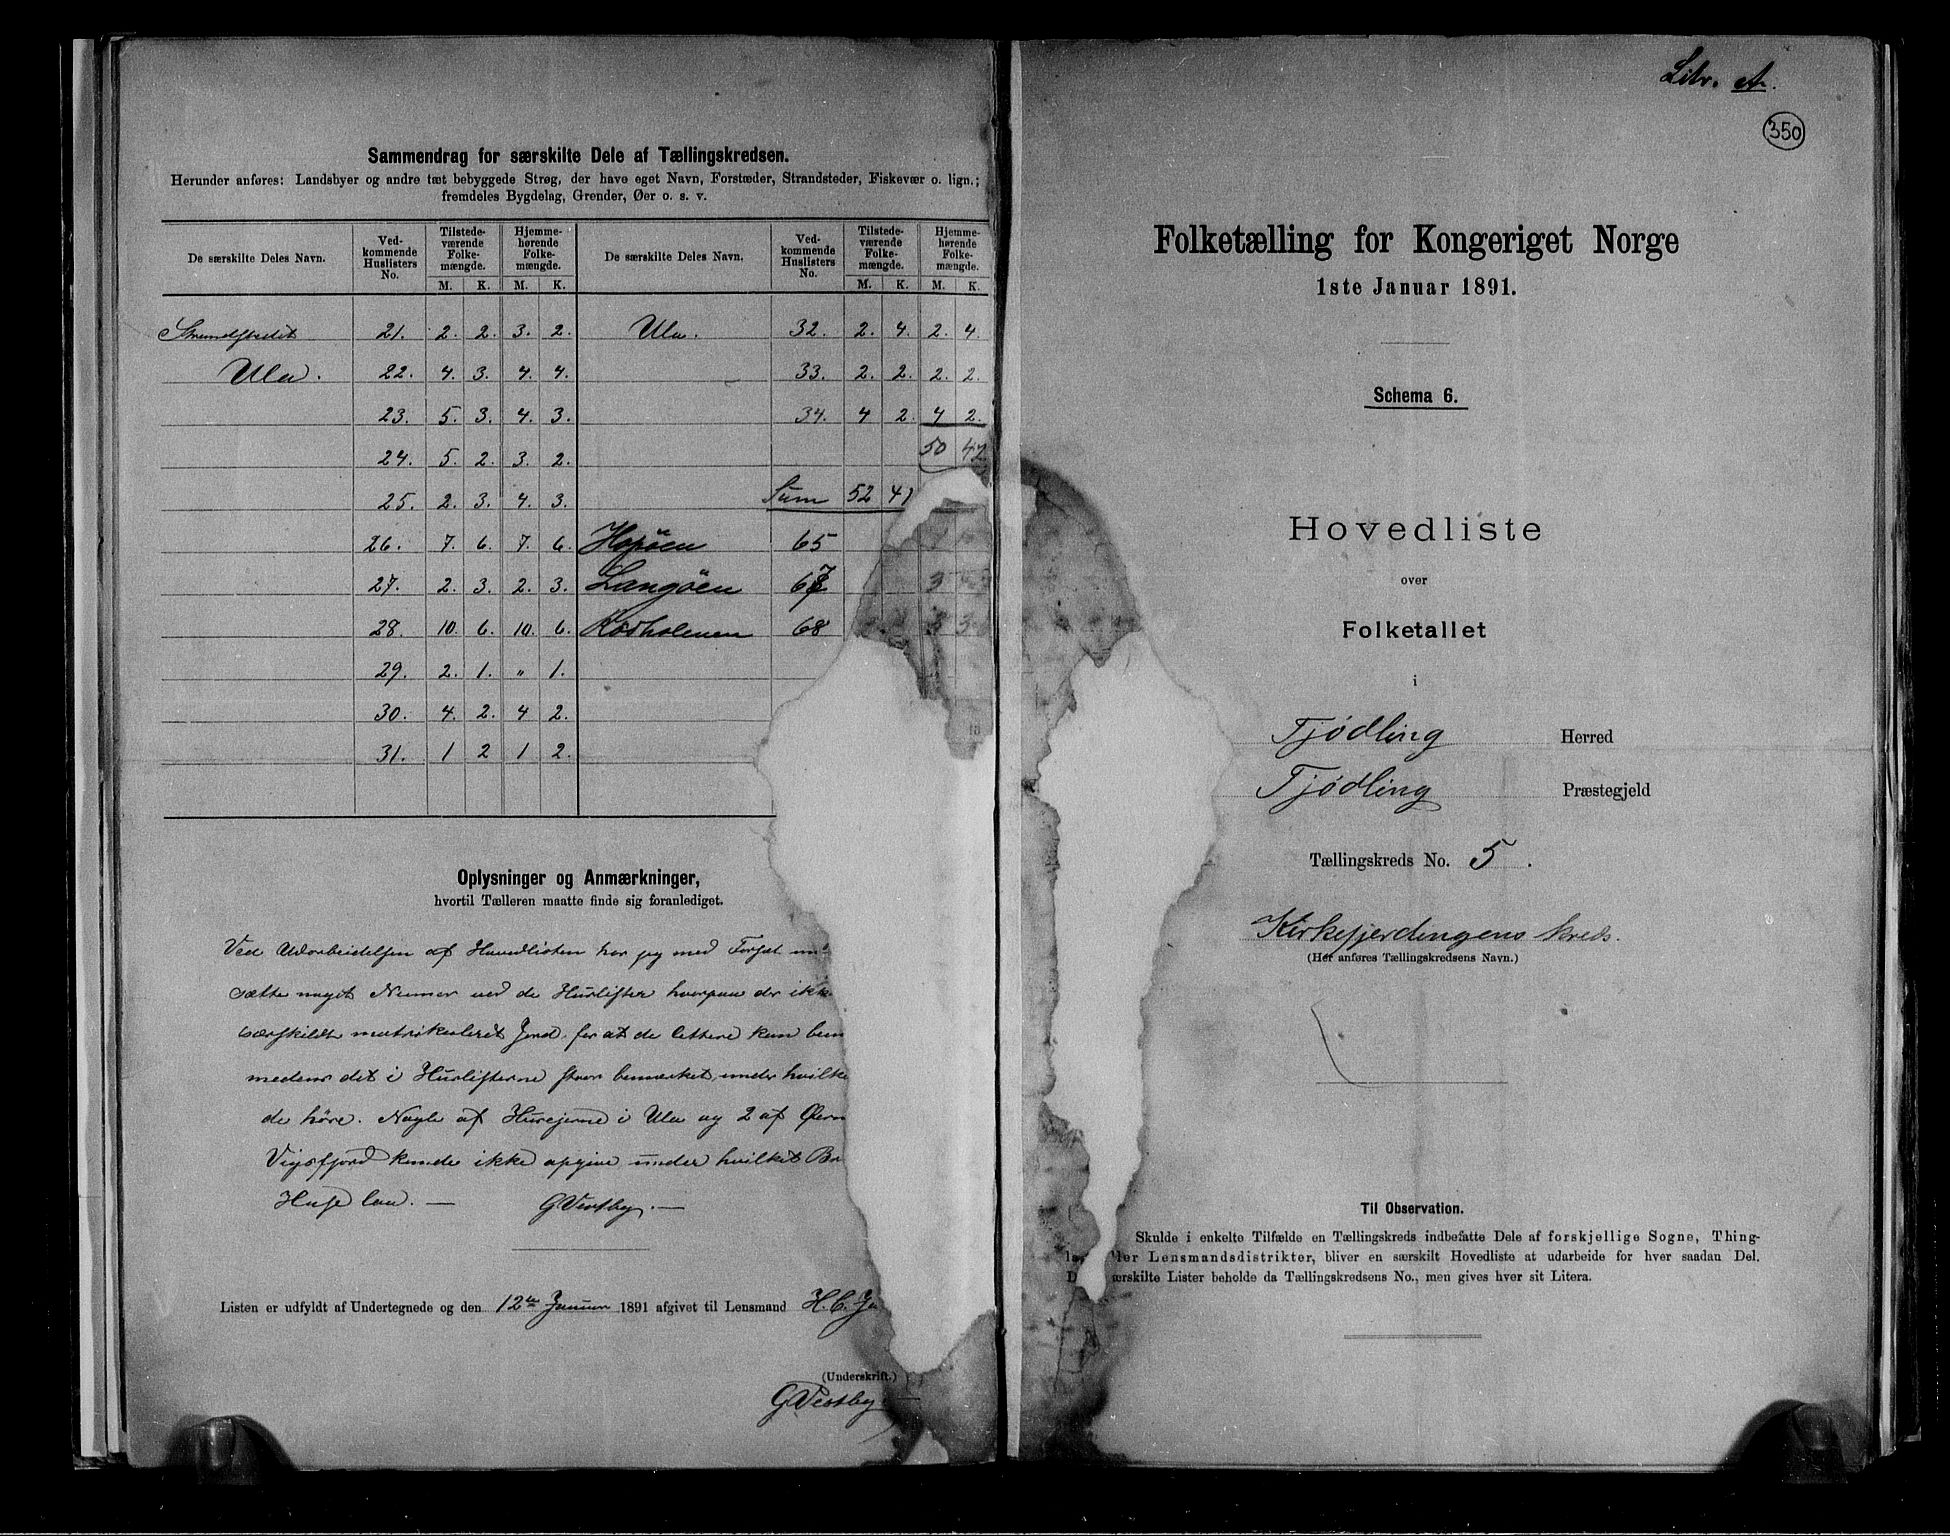 Sammendrag for særskilte Dele af Tællingskredsen.
Herunder anføres: Landsbyer og andre tæt bebyggede Strøg, der have eget Navn, Forstæder, Strandsteder, Fiskevær o. lign.;
fremdeles Bygdelag, Grender, Øer o. s. v.
De særskilte Deles Navn. Vedkommende Huslisters No. Tilstedeværende Folkemængde. Hjemmehørende Folkemængde. De særskilte Deles Navn. Vedkommende Huslisters No. Tilstedeværende Folkemængde. Hjemmehørende Folkemængde.
M. K. M. K. M. K. M. K.
Strandstedet 21. 2. 2. 3. 2. Ula. 32. 2. 4. 2. 4.
Ula. 22. 4. 3. 4. 4. 33. 2. 2. 2. 2.
23. 5. 3. 4. 3. 34. 4 2. 4 2.
24. 5. 2. 3. 2. 50 42
25. 2. 3. 4. 3. Sum 52 41
26. 7. 6. 7. 6. Hopøen 65
27. 2. 3. 2. 3. Langøen 67 3
28. 10. 6. 10. 6. Rødholenen 68 3
29. 2. 1. " 1.
30. 4. 2. 4 2.
31. 1 2 1 2.
Oplysninger og Anmærkninger,
hvortil Tælleren maatte finde sig foranlediget.
Ved Udarbeidelsen af Hovedlisten har jeg med Forsæt
sætte noget Numer ved de Huslister hvorpaa der ikk
særskildt matrikuleret Jord, for at de lettere kan
medens det i Huslisterne staar bemærket under hvilke
de høre. Nogle af Huseierne i Ula og 2 af Øern
Vigsfjord kunde ikke opgive under hvilket Br
Huse laa. — G Vestby. —
Listen er udfyldt af Undertegnede og den 12te Januar 1891 afgivet til Lensmand H. C. Ja
(Underskrift.)
G Vestby
Litr. A.
350
Folketælling for Kongeriget Norge
1ste Januar 1891.
Schema 6.
Hovedliste
over
Folketallet
i
Tjødling Herred
Tjødling Præstegjeld
Tællingskreds No. 5.
Kirkefjerdingens kreds.
(Her anføres Tællingskredsens Navn.)
Til Observation.
Skulde i enkelte Tilfælde en Tællingskreds indbefatte Dele af forskjellige Sogne, Thing-
ler Lensmandsdistrikter, bliver en særskilt Hovedliste at udarbeide for hver saadan Del.
D ærskilte Lister beholde da Tællingskredsens No., men gives hver sit Litera.